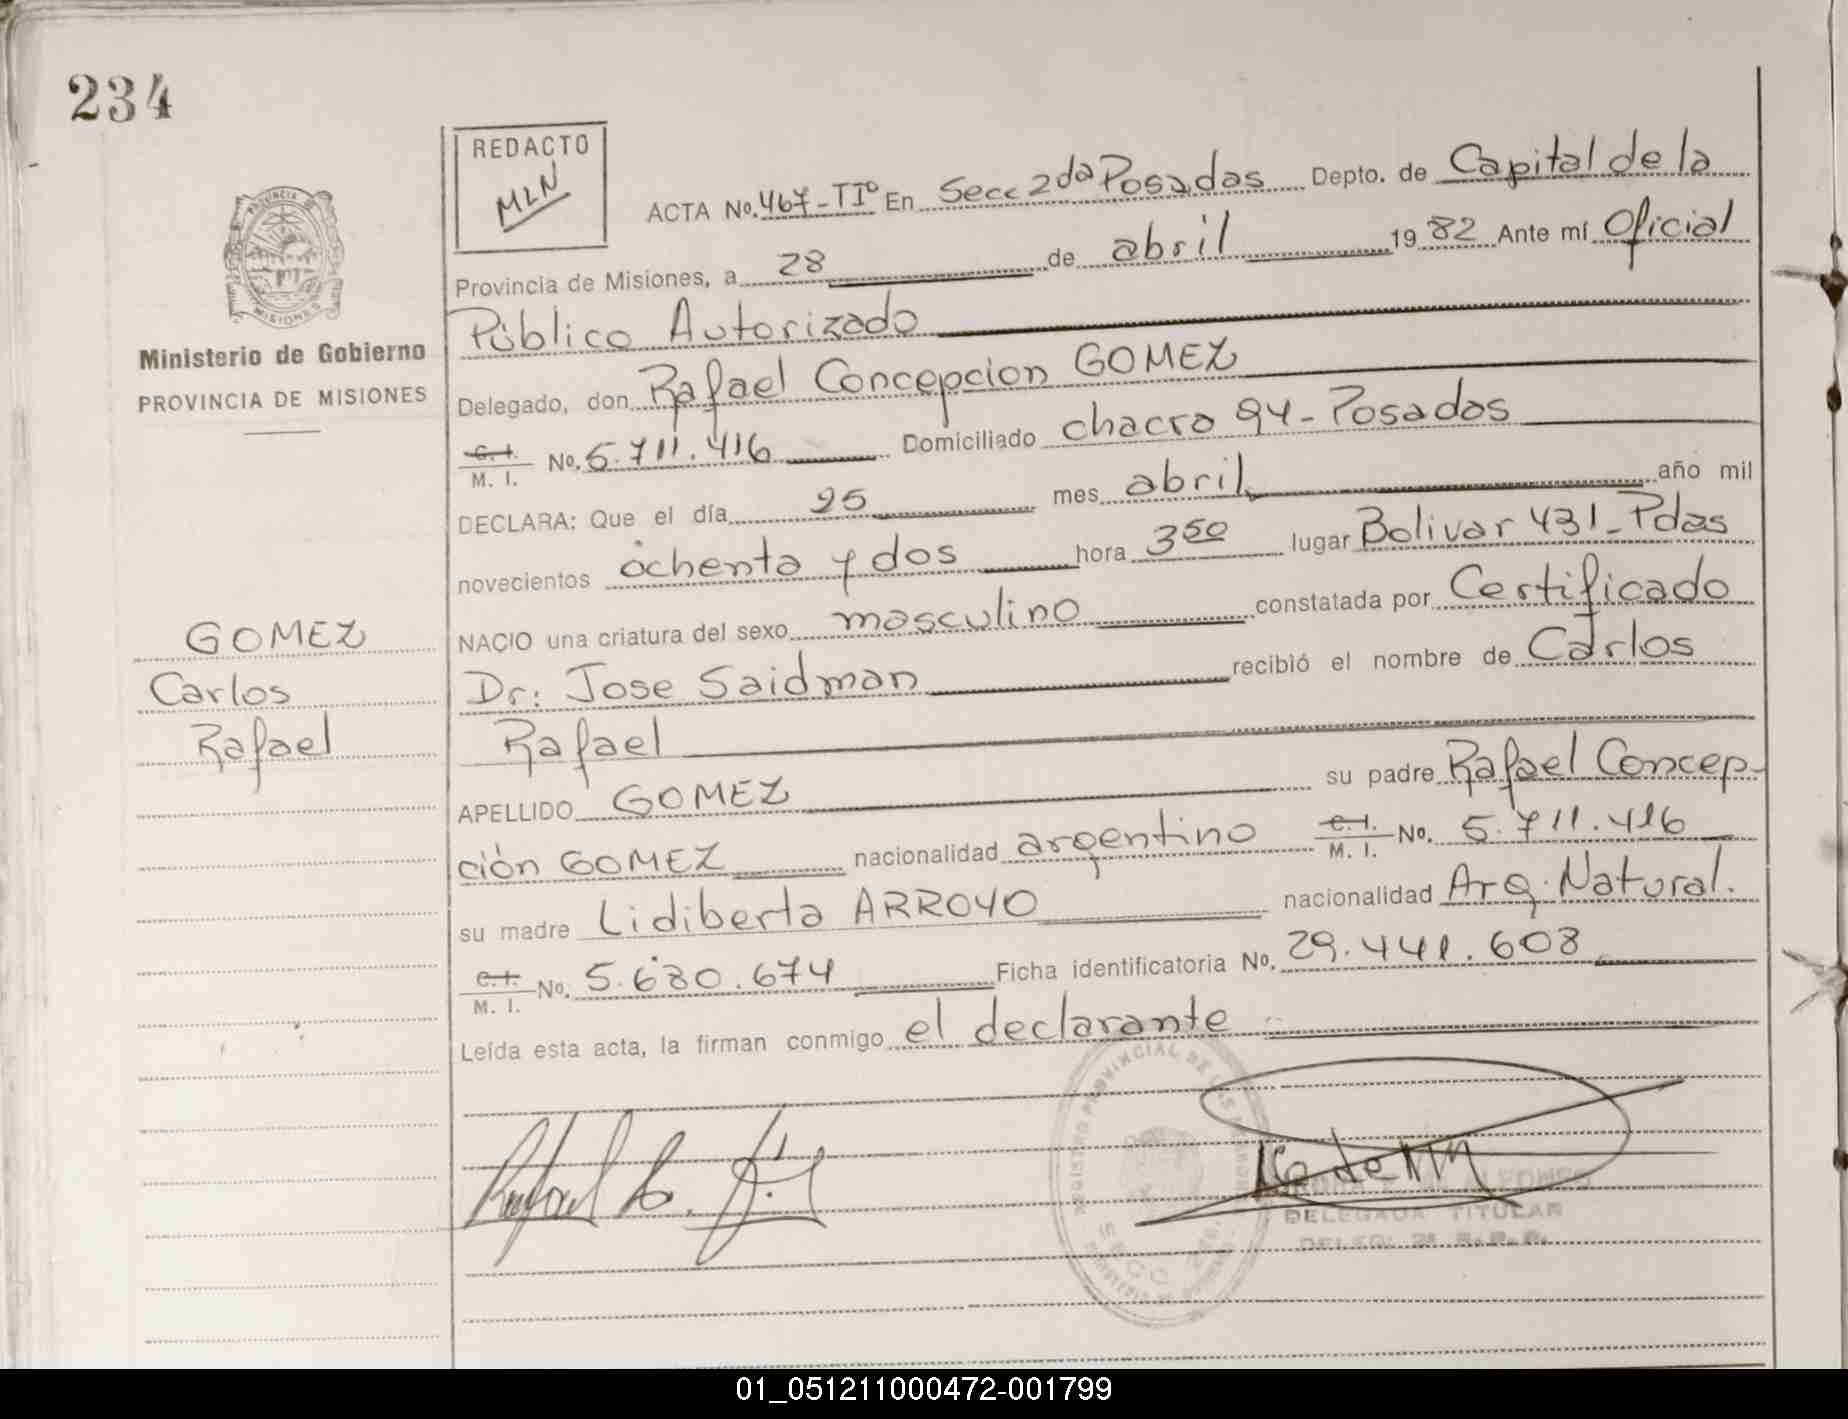 234
REDACTO
MLN
ACTA No. 467-TIº En Secc 2da Posadas Depto. de Capital de la
Provincia de Misiones, a 28 de abril 1982 Ante mí Oficial
Público Autorizado
Ministerio de Gobierno
PROVINCIA DE MISIONES
Delegado, don Rafael Concepcion GOMEZ
C. I.
M. I. No. 5.711.416 Domiciliado chacra 94 - Posadas
DECLARA: Que el día 25 mes abril año mil
novecientos ochenta y dos hora 3 50 lugar Bolivar 431 - Pdas
NACIO una criatura del sexo masculino constatada por Certificado
Dr: Jose Saidman recibió el nombre de Carlos
Rafael
GOMEZ
Carlos
Rafael
APELLIDO GOMEZ su padre Rafael Concep-
ción GOMEZ nacionalidad argentino C. I.
M. I. No. 5.711.416
su madre Lidiberta ARROYO nacionalidad Arg. Natural.
C. I.
M. I. No. 5.680.674 Ficha identificatoria No. 29.441.608
Leída esta acta, la firman conmigo el declarante
Rafael C.
DELEGADA TITULAR
01_051211000472-001799